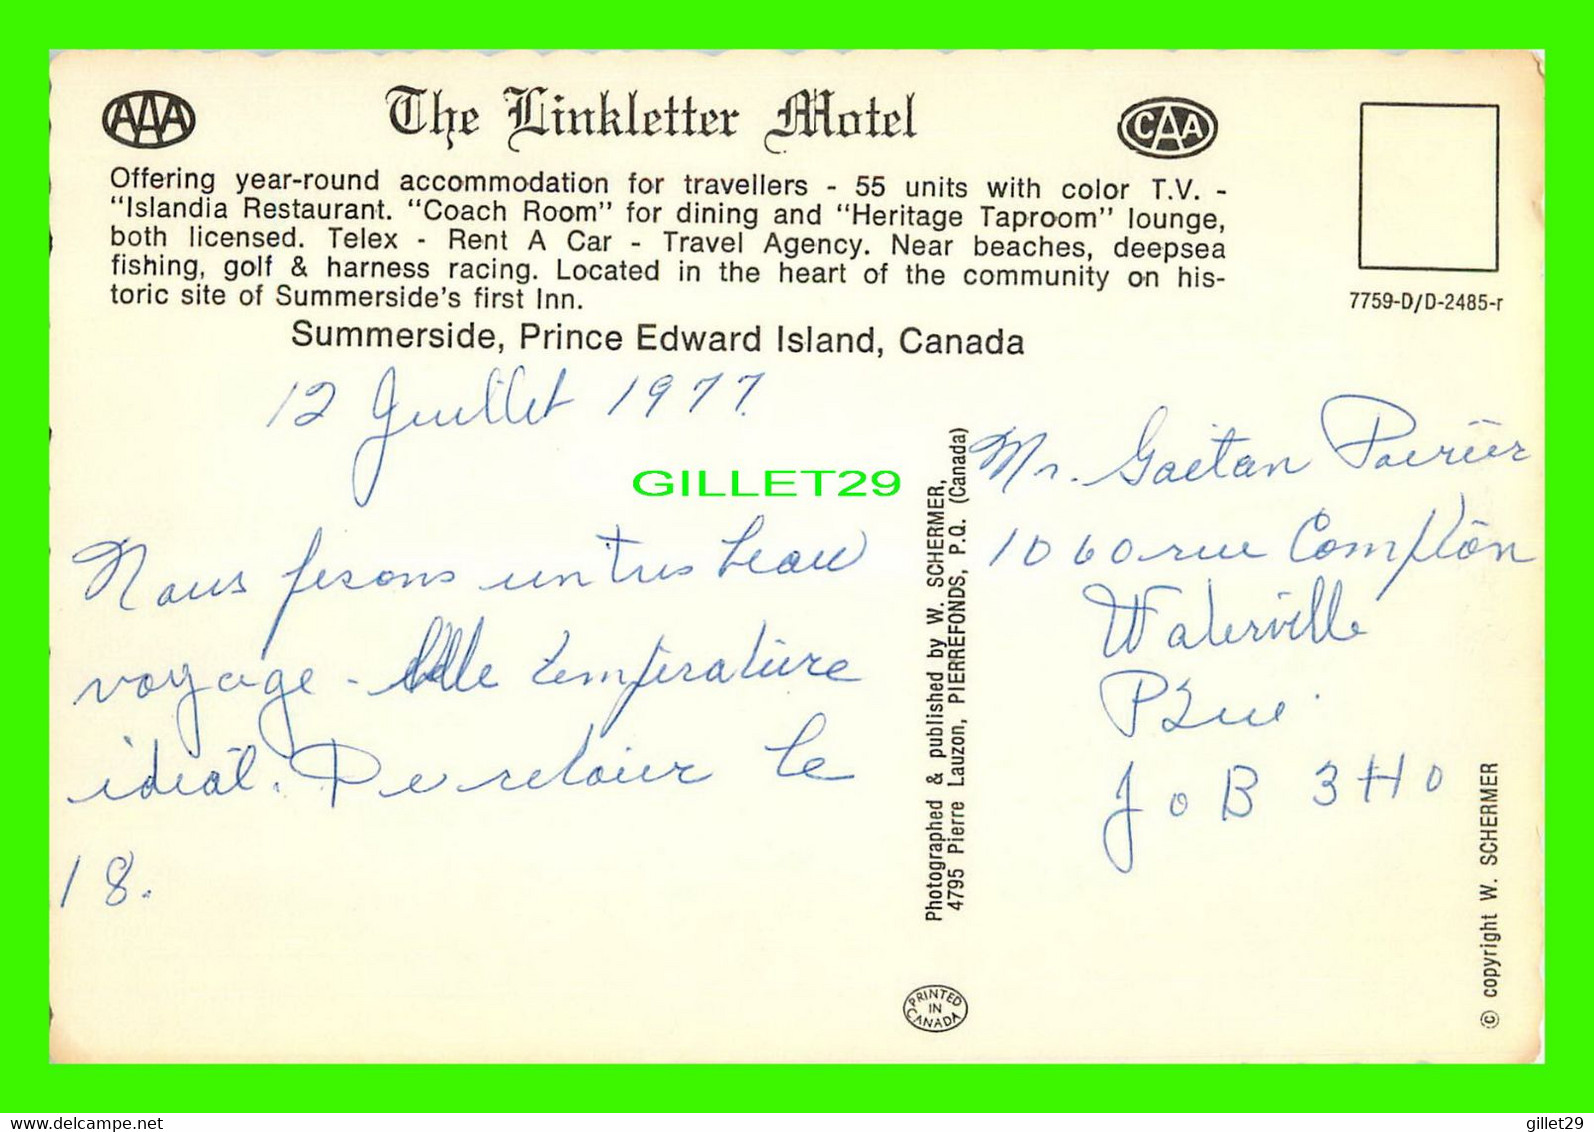 AAA
The Linkletter Motel
CAA
Offering year-round accommodation for travellers - 55 units with color T.V. -
"Islandia Restaurant. "Coach Room" for dining and "Heritage Taproom" lounge,
both licensed. Telex - Rent A Car - Travel Agency. Near beaches, deepsea
fishing, golf & harness racing. Located in the heart of the community on his-
toric site of Summerside's first Inn.
Summerside, Prince Edward Island, Canada
7759-D/D-2485-r
12 Juillet 1977.
GILLET29
Nous fesons un tres beau
voyage - belle température
idéal. De retour le
18.
Photographed & published by W. SCHERMER,
4795 Pierre Lauzon, PIERREFONDS, P.Q. (Canada)
PRINTED
IN
CANADA
Mr. Gaétan Poirier
1060 rue Compton
Waterville
P Que.
JoB 3H0
© copyright W. SCHERMER
https://www.delcampe.net
gillet29